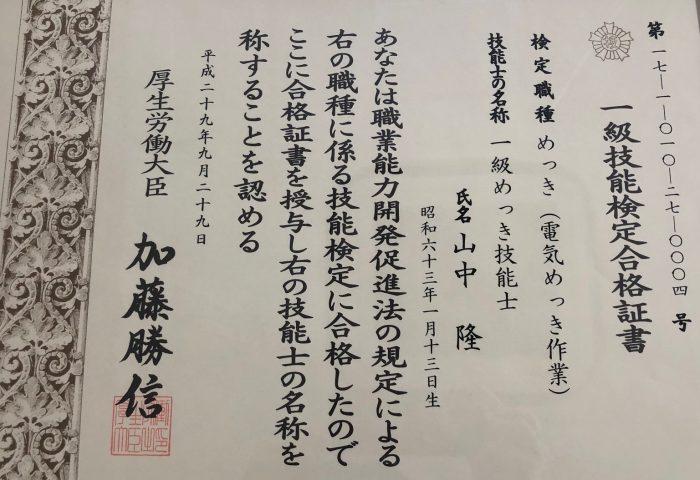 第一七―一―〇一〇―二七―〇〇〇四号
一級技能検定合格証書
検定職種 めっき(電気めっき作業)
技能士の名称 一級めっき技能士
氏名 山中 隆
昭和六十三年一月十三日生
あなたは職業能力開発促進法の規定による
右の職種に係る技能検定に合格したので
ここに合格証書を授与し右の技能士の名称を
称することを認める
平成二十九年九月二十九日
厚生労働大臣 加藤勝信